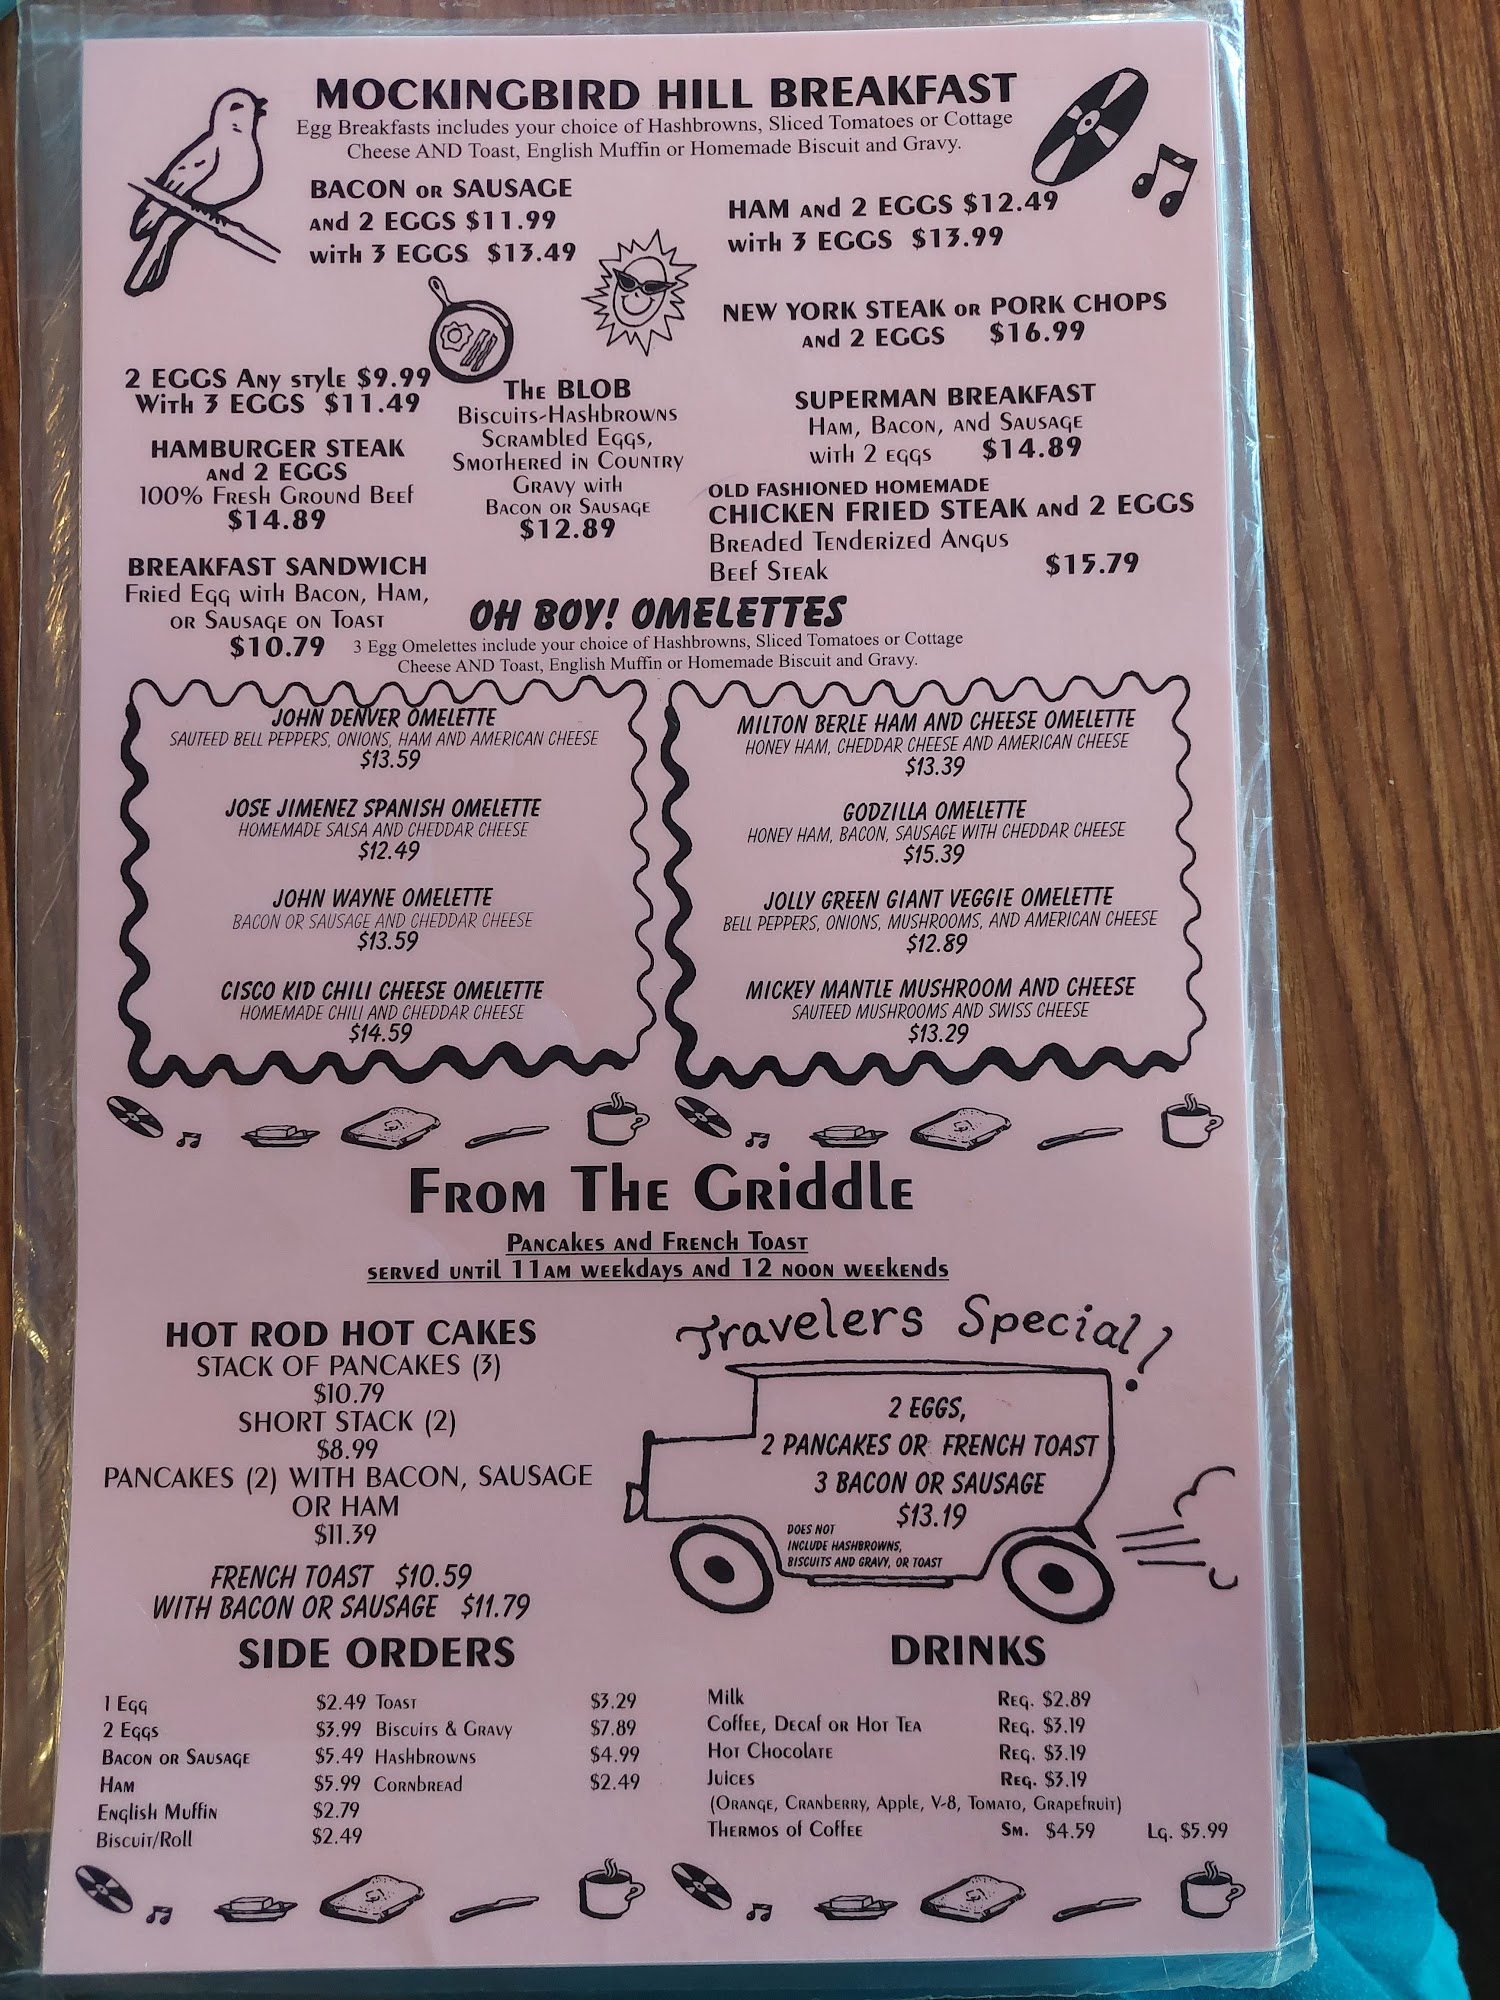 MOCKINGBIRD HILL BREAKFAST
Egg Breakfasts includes your choice of Hashbrowns, Sliced Tomatoes or Cottage
Cheese AND Toast, English Muffin or Homemade Biscuit and Gravy.
BACON OR SAUSAGE
AND 2 EGGS $11.99
WITH 3 EGGS $13.49
HAM AND 2 EGGS $12.49
WITH 3 EGGS $13.99
NEW YORK STEAK OR PORK CHOPS
AND 2 EGGS $16.99
2 EGGS ANY STYLE $9.99
WITH 3 EGGS $11.49
HAMBURGER STEAK
AND 2 EGGS
100% FRESH GROUND BEEF
$14.89
BREAKFAST SANDWICH
FRIED EGG WITH BACON, HAM,
OR SAUSAGE ON TOAST
$10.79
THE BLOB
BISCUITS-HASHBROWNS
SCRAMBLED EGGS,
SMOTHERED IN COUNTRY
GRAVY WITH
BACON OR SAUSAGE
$12.89
SUPERMAN BREAKFAST
HAM, BACON, AND SAUSAGE
WITH 2 EGGS $14.89
OLD FASHIONED HOMEMADE
CHICKEN FRIED STEAK AND 2 EGGS
BREADED TENDERIZED ANGUS
BEEF STEAK $15.79
OH BOY! OMELETTES
3 Egg Omelettes include your choice of Hashbrowns, Sliced Tomatoes or Cottage
Cheese AND Toast, English Muffin or Homemade Biscuit and Gravy.
JOHN DENVER OMELETTE
SAUTEED BELL PEPPERS, ONIONS, HAM AND AMERICAN CHEESE
$13.59
JOSE JIMENEZ SPANISH OMELETTE
HOMEMADE SALSA AND CHEDDAR CHEESE
$12.49
JOHN WAYNE OMELETTE
BACON OR SAUSAGE AND CHEDDAR CHEESE
$13.59
CISCO KID CHILI CHEESE OMELETTE
HOMEMADE CHILI AND CHEDDAR CHEESE
$14.59
MILTON BERLE HAM AND CHEESE OMELETTE
HONEY HAM, CHEDDAR CHEESE AND AMERICAN CHEESE
$13.39
GODZILLA OMELETTE
HONEY HAM, BACON, SAUSAGE WITH CHEDDAR CHEESE
$15.39
JOLLY GREEN GIANT VEGGIE OMELETTE
BELL PEPPERS, ONIONS, MUSHROOMS, AND AMERICAN CHEESE
$12.89
MICKEY MANTLE MUSHROOM AND CHEESE
SAUTEED MUSHROOMS AND SWISS CHEESE
$13.29
FROM THE GRIDDLE
PANCAKES AND FRENCH TOAST
SERVED UNTIL 11AM WEEKDAYS AND 12 NOON WEEKENDS
HOT ROD HOT CAKES
STACK OF PANCAKES (3)
$10.79
SHORT STACK (2)
$8.99
PANCAKES (2) WITH BACON, SAUSAGE
OR HAM
$11.39
FRENCH TOAST $10.59
WITH BACON OR SAUSAGE $11.79
Travelers Special!
2 EGGS,
2 PANCAKES OR FRENCH TOAST
3 BACON OR SAUSAGE
$13.19
DOES NOT
INCLUDE HASHBROWNS,
BISCUITS AND GRAVY, OR TOAST
SIDE ORDERS
1 EGG $2.49 TOAST $3.29
2 EGGS $3.99 BISCUITS & GRAVY $7.89
BACON OR SAUSAGE $5.49 HASHBROWNS $4.99
HAM $5.99 CORNBREAD $2.49
ENGLISH MUFFIN $2.79
BISCUIT/ROLL $2.49
DRINKS
MILK REG. $2.89
COFFEE, DECAF OR HOT TEA REG. $3.19
HOT CHOCOLATE REG. $3.19
JUICES REG. $3.19
(ORANGE, CRANBERRY, APPLE, V-8, TOMATO, GRAPEFRUIT)
THERMOS OF COFFEE SM. $4.59 LG. $5.99